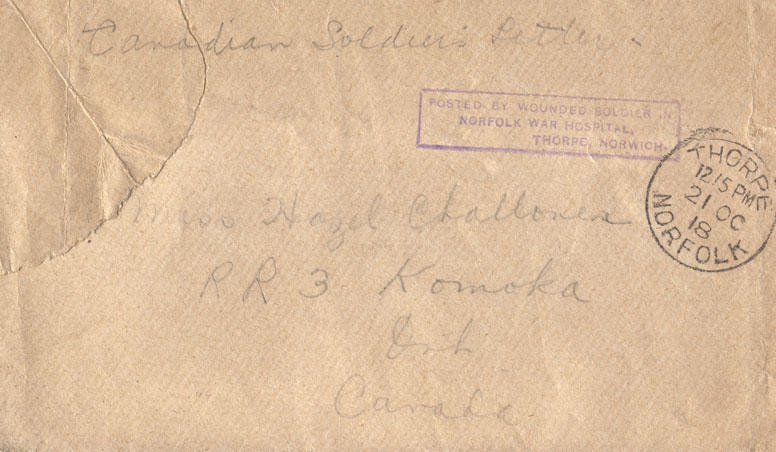 Canadian Soldiers Letter.
POSTED BY WOUNDED SOLDIER IN
NORFOLK WAR HOSPITAL,
THORPE, NORWICH.
THORPE
12.15 PM
21 OC
18
NORFOLK
Miss Hazel Challoner
RR 3 Komoka
Ont
Canada.